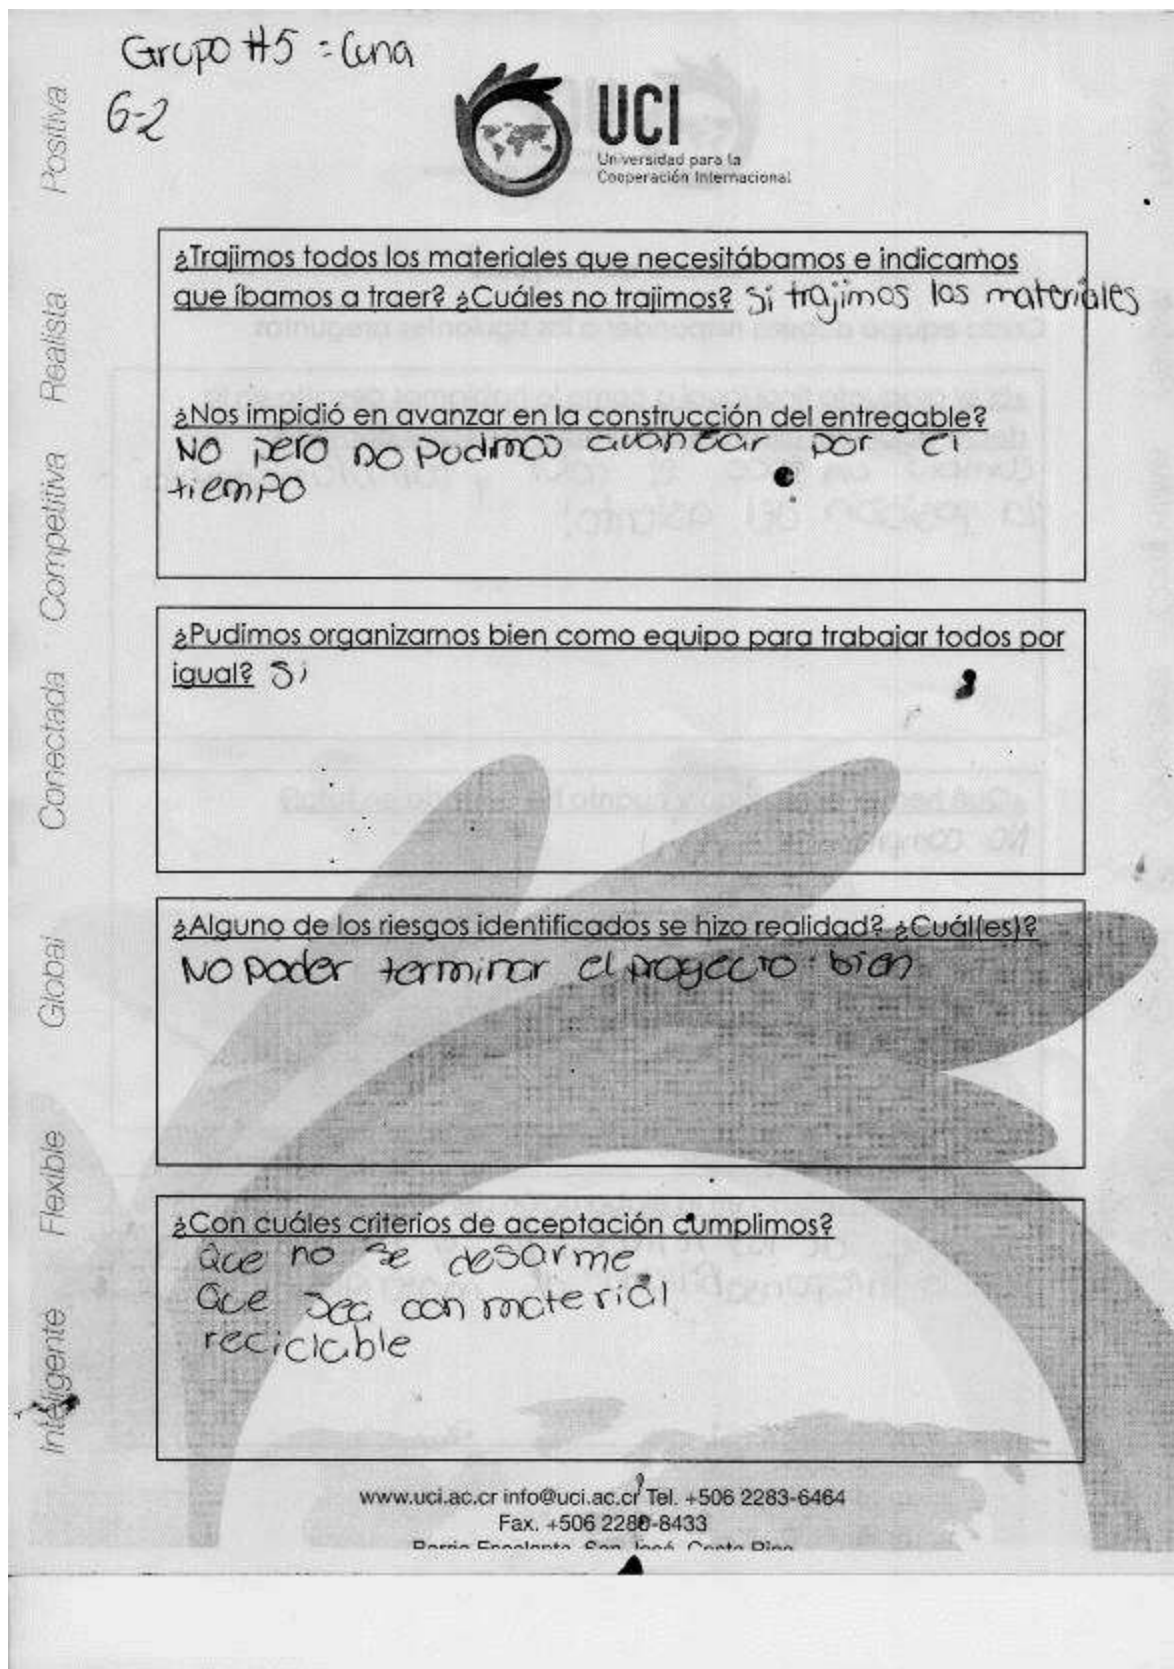 Grupo #5 = Cuna
6-2
UCI
Universidad para la
Cooperación Internacional
Positiva
Realista
Competitiva
Conectada
Global
Flexible
Inteligente
¿Trajimos todos los materiales que necesitábamos e indicamos
que íbamos a traer? ¿Cuáles no trajimos? Si trajimos los materiales
¿Nos impidió en avanzar en la construcción del entregable?
NO pero no pudimos avanzar por el
tiempo
¿Pudimos organizarnos bien como equipo para trabajar todos por
igual? Si
¿Alguno de los riesgos identificados se hizo realidad? ¿Cuál(es)?
No poder terminar el proyecto bien
¿Con cuáles criterios de aceptación cumplimos?
Que no se desarme
Que sea con material
reciclable
www.uci.ac.cr info@uci.ac.cr Tel. +506 2283-6464
Fax. +506 2280-8433
Barrio Escalante, San José, Costa Rica